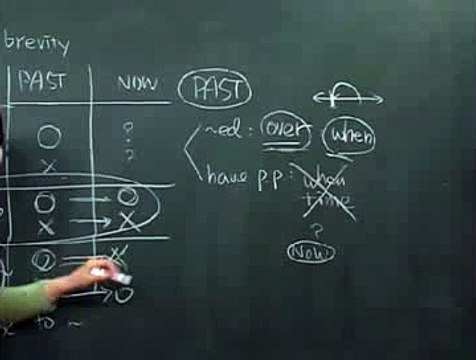 brevity
PAST NOW PAST
~ed : over when
O ?
X ?
have p.p : when
time
O → O
X → X
?
Now
O → X
→ O
to ~